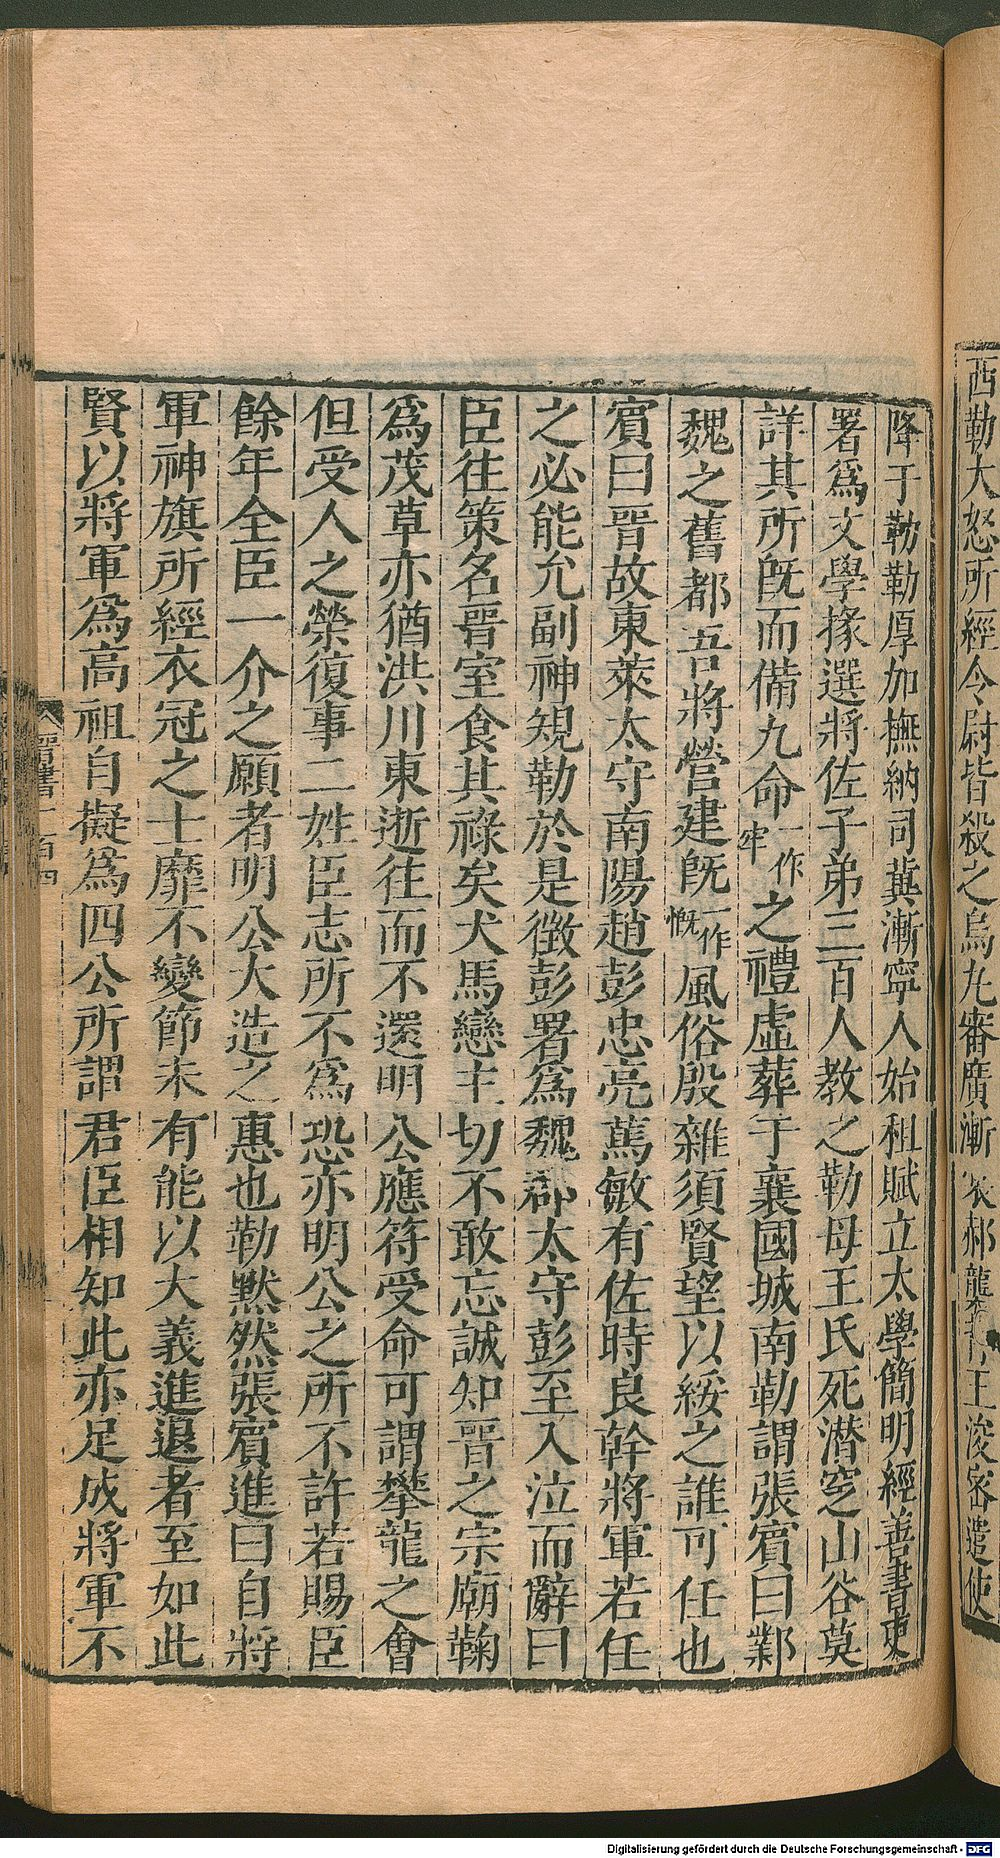 西勒大怒所經令尉皆殺之烏丸審廣漸裳郝龍
王浚密遣使
降于勒勒厚加撫納司冀漸寧人始租賦立太學簡明經善書吏
署爲文學掾選將佐子弟三百人教之勒母王氏死潛窆山谷莫
詳其所旣而備九命一作牢之禮虛葬于襄國城南勒謂張賓曰鄴
魏之舊都吾將營建旣一作慨風俗殷雜須賢望以綏之誰可任也
賓曰晉故東萊太守南陽趙彭忠亮篤敏有佐時良幹將軍若任
之必能允副神規勒於是徵彭署爲魏郡太守彭至入泣而辭曰
臣往策名晉室食其祿矣犬馬戀主切不敢忘誠知晉之宗廟鞠
爲茂草亦猶洪川東逝往而不還明公應符受命可謂攀龍之會
但受人之榮復事二姓臣志所不爲恐亦明公之所不許若賜臣
餘年全臣一介之願者明公大造之惠也勒默然張賓進曰自將
軍神旗所經衣冠之士靡不變節未有能以大義進退者至如此
賢以將軍爲高祖自擬爲四公所謂君臣相知此亦足成將軍不
晉書一百四
Digitalisierung gefördert durch die Deutsche Forschungsgemeinschaft - DFG